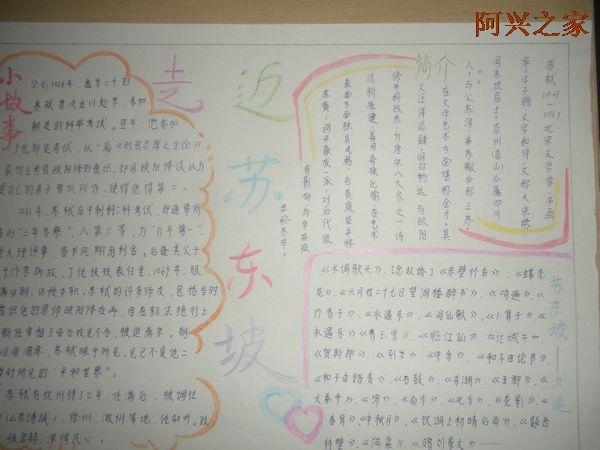 阿兴之家
走近苏东坡
小故事
公元1056年,虚岁二十的
苏轼首次出川赴京,参加
朝廷的科举考试。翌年,他参加
了礼部的考试,以一篇《刑赏忠厚之至论》
获得主考官欧阳修的赏识,却因欧阳修误认为
是自己的弟子曾巩所作,
使他得第二。
1061年,苏轼应中制科考试,即通常所
谓的“三年京察”,入第三等,为“百年第一”,
授大理评事、签书凤翔府判官。后逢其父于
汴京病故,丁忧扶丧归里。1069年,服
满还朝,仍授本职。苏轼的许多师友,包括当时
赏识他的恩师欧阳修在内,因在新法施行上
与新任宰相王安石政见不合,被迫离京。朝
野旧雨凋零,苏轼眼中所见,已不是他二
十岁时所见的“平和世界”。
苏轼在杭州待了三年,任满后,被调往
徐州、
等地,任知州。政
深得民心。
简介
苏轼(1037—
1101),北宋文学家、书画
家。字子瞻,
号东坡居士。眉州(眉山)
人。与父苏洵,弟苏辙合称三苏。
在文学艺术方面堪称全才。其
文汪洋恣肆,明白畅达,与欧阳
修并称欧苏,为唐宋八大家之一;诗
清新豪健,善用夸张比喻,在艺术
表现方面独具风格,与黄庭坚并称
苏黄;词开豪放一派,对后代很
有影响,与辛弃疾
并称苏辛。
苏东坡
《水调歌头》、《念奴娇》《赤壁怀古》、《蝶恋
花》、《六月二十七日望湖楼醉书》、《哨遍》、《
行香子》、《永遇乐》、《洞仙歌》、《卜算子》、《
永遇乐》、《青玉案》、《临江仙》、《江城子》、
《贺新郎》、
《和子由论书》、
《和子由踏青》、
《石鼓》、
《王郎》、
《春宵》、《中秋月》、《饮湖上初晴后雨》、《题西
林壁》、《海棠》、《赠刘景文》……